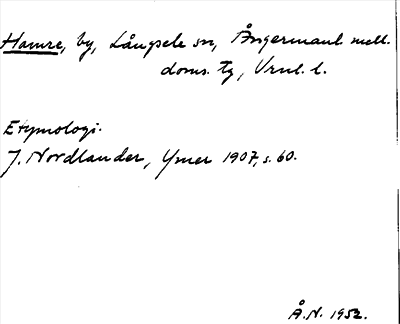 Hamre, by, Långsele sn, Ångermanl. mell.
doms. tg, Vrnl. l.
Etymologi.
J. Nordlander, Ymer 1907, s. 60.
Å.N. 1952.